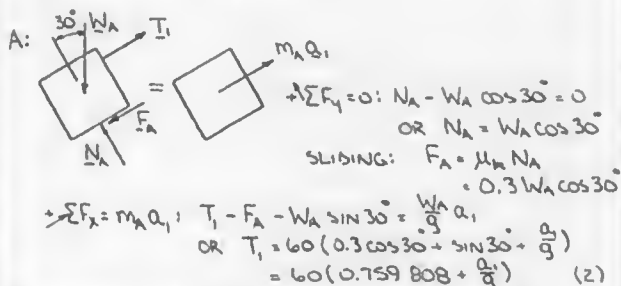 A:
30° W_A
T₁
F_A
N_A
=
m_A a₁
+↖ΣF_y = 0: N_A - W_A cos 30° = 0
OR N_A = W_A cos 30°
SLIDING: F_A = μ_k N_A
= 0.3 W_A cos 30°
+↗ΣF_x = m_A a₁: T₁ - F_A - W_A sin 30° = W_A/g a₁
OR T₁ = 60(0.3 cos 30° + sin 30° + a₁/g)
= 60(0.759 808 + a₁/g) (2)